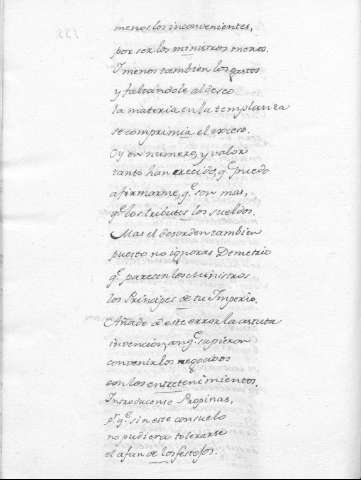 menos los inconvenientes,
por ser los ministros menos.
Y menos tambien los gastos
y faltandole al deseo
la materia en la templanza
se comprimia el exceso.
Oy en numero, y valor
tanto han crecido, q.e puedo
afirmarme, q.e son mas,
q.e los tributos los sueldos.
Mas el desorden tambien
puesto no ignoras Demetrio
q.e parecen los Ministros
los Principes de tu Imperio.
Añade à este error la astuta
invencion, con q.e supieron
convenir los negocios
con los entretenimientos.
Introducense Propinas,
p.r q.e sin este consuelo
no pudiera tolerarse
el afan de los festejos.